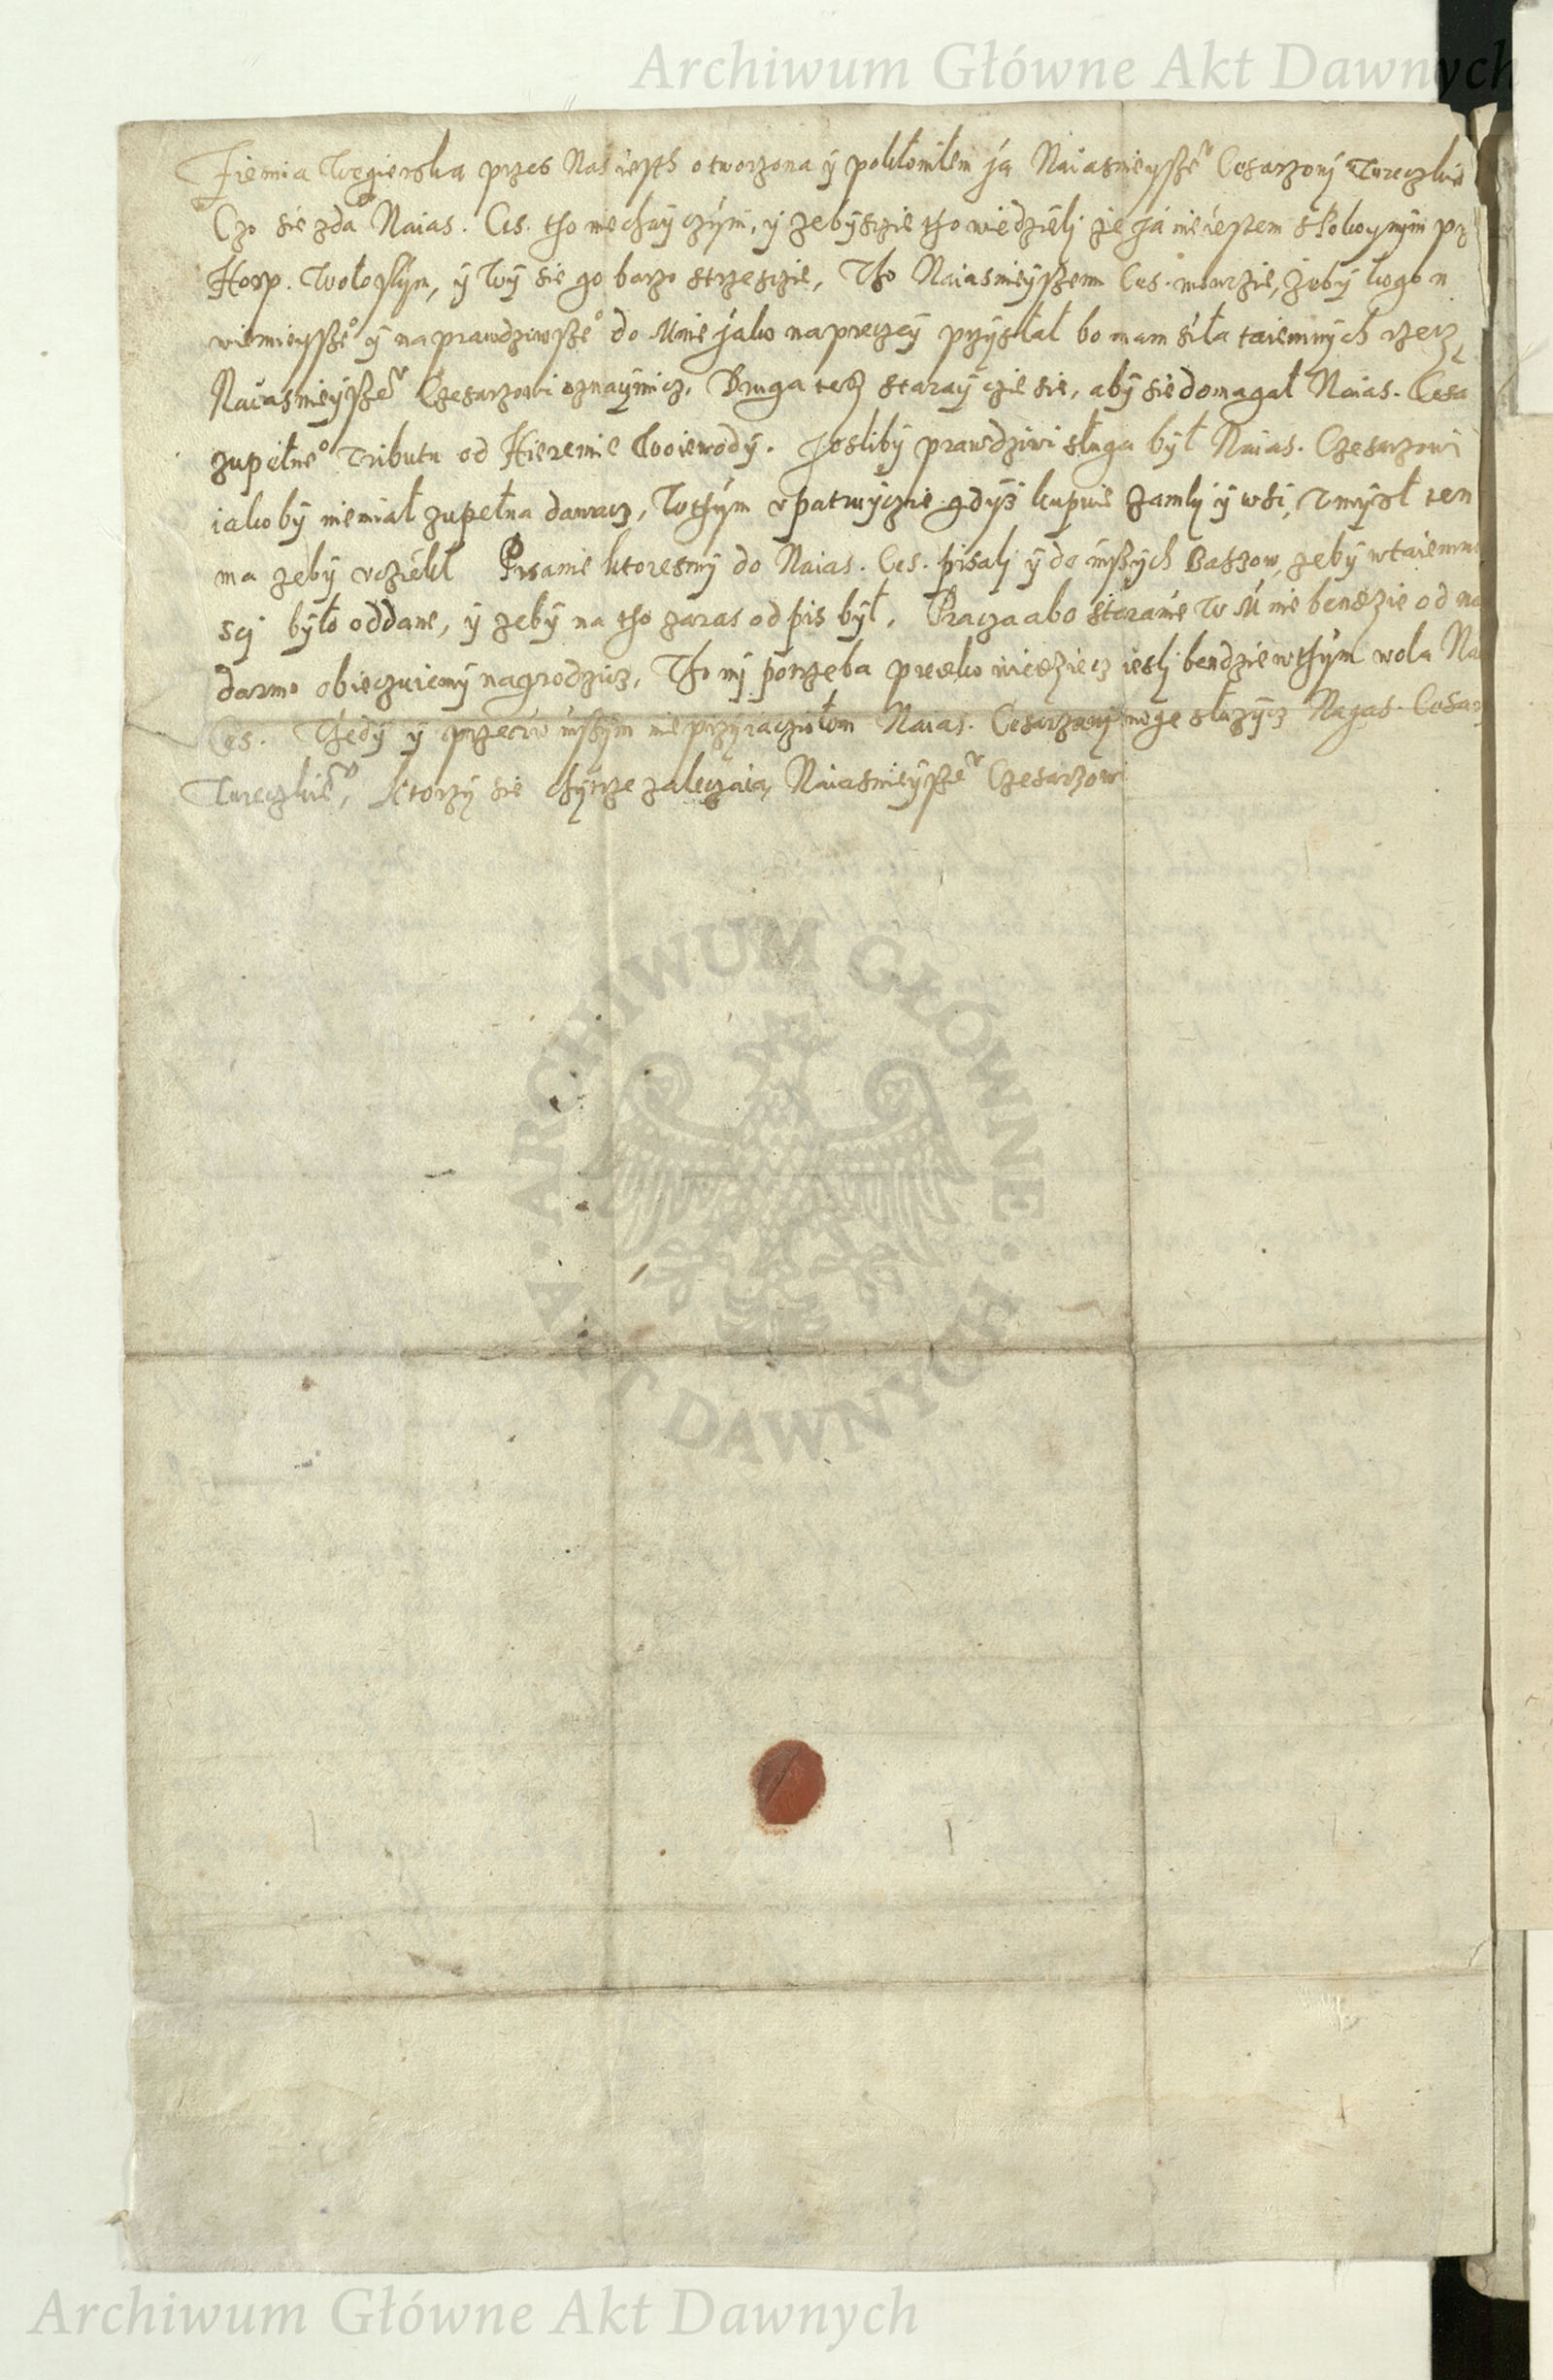 Archiwum Główne Akt Dawnych
Ziemia Węgierska przes Nas iesth otworzona ÿ pokłonilem ją Naiasnieysze͞ᵛ Cesarzowj Tureczkie
Czo sie zda Naias. Ces. tho niechaÿ czÿni, ÿ zebÿsczie tho wiedzielj że já nie iestem spokoynÿm prz
Hosp. Wołoskÿm, ÿ Wÿ sie go barzo strzesczie, Tho Naiasnieÿszemu Ces. mowczie, żebÿ kogo n
wiernieysze° ÿ naprawdziwsze° do Mnie jako napreczeÿ przÿsłał bo mam siła taiemnÿch rzecz
Naiasnieÿsze͞ᵛ Czesarzowi oznaÿmicz. Druga tesz staraÿ czie sie, abÿ sie domagał Naias. Cesa
zupełne° Tributu od Hieremie Woiewodÿ. Jeslibÿ prawdziwi sługa bÿł Naias. Czesarzowi
iakobÿ niemiał zupełna dawacz, Wthÿm vpatruÿczie gdÿż kupuie zamkj ÿ wsi, Umÿsł ten
ma zebÿ vcziekł Pisanie ktoresmÿ do Naias. Ces. pisalj ÿ do inszÿch Baszow, zebÿ wtaiemno
scj bÿło oddane, ÿ zebÿ na tho zaras odpis bÿł. Pracza abo staranie W M nie bendzie od na
darmo obieczuiemÿ nagrodzicz, Tho mj potrzeba predko wiedziecz ieslj bendzie wthÿm wola Na
Ces. Thedÿ ÿ przeciw inszÿm nieprzÿiacziołom Naias. Cesarzowj moge słuzÿcz Nayas. Cesarz
Tureczkie͞ᵛ, ktorzÿ sie chÿtrze zaleczaią Naiasnieÿsze͞ᵛ Czesarzowi
ARCHIWUM GŁÓWNE · AKT DAWNYCH ·
Archiwum Główne Akt Dawnych